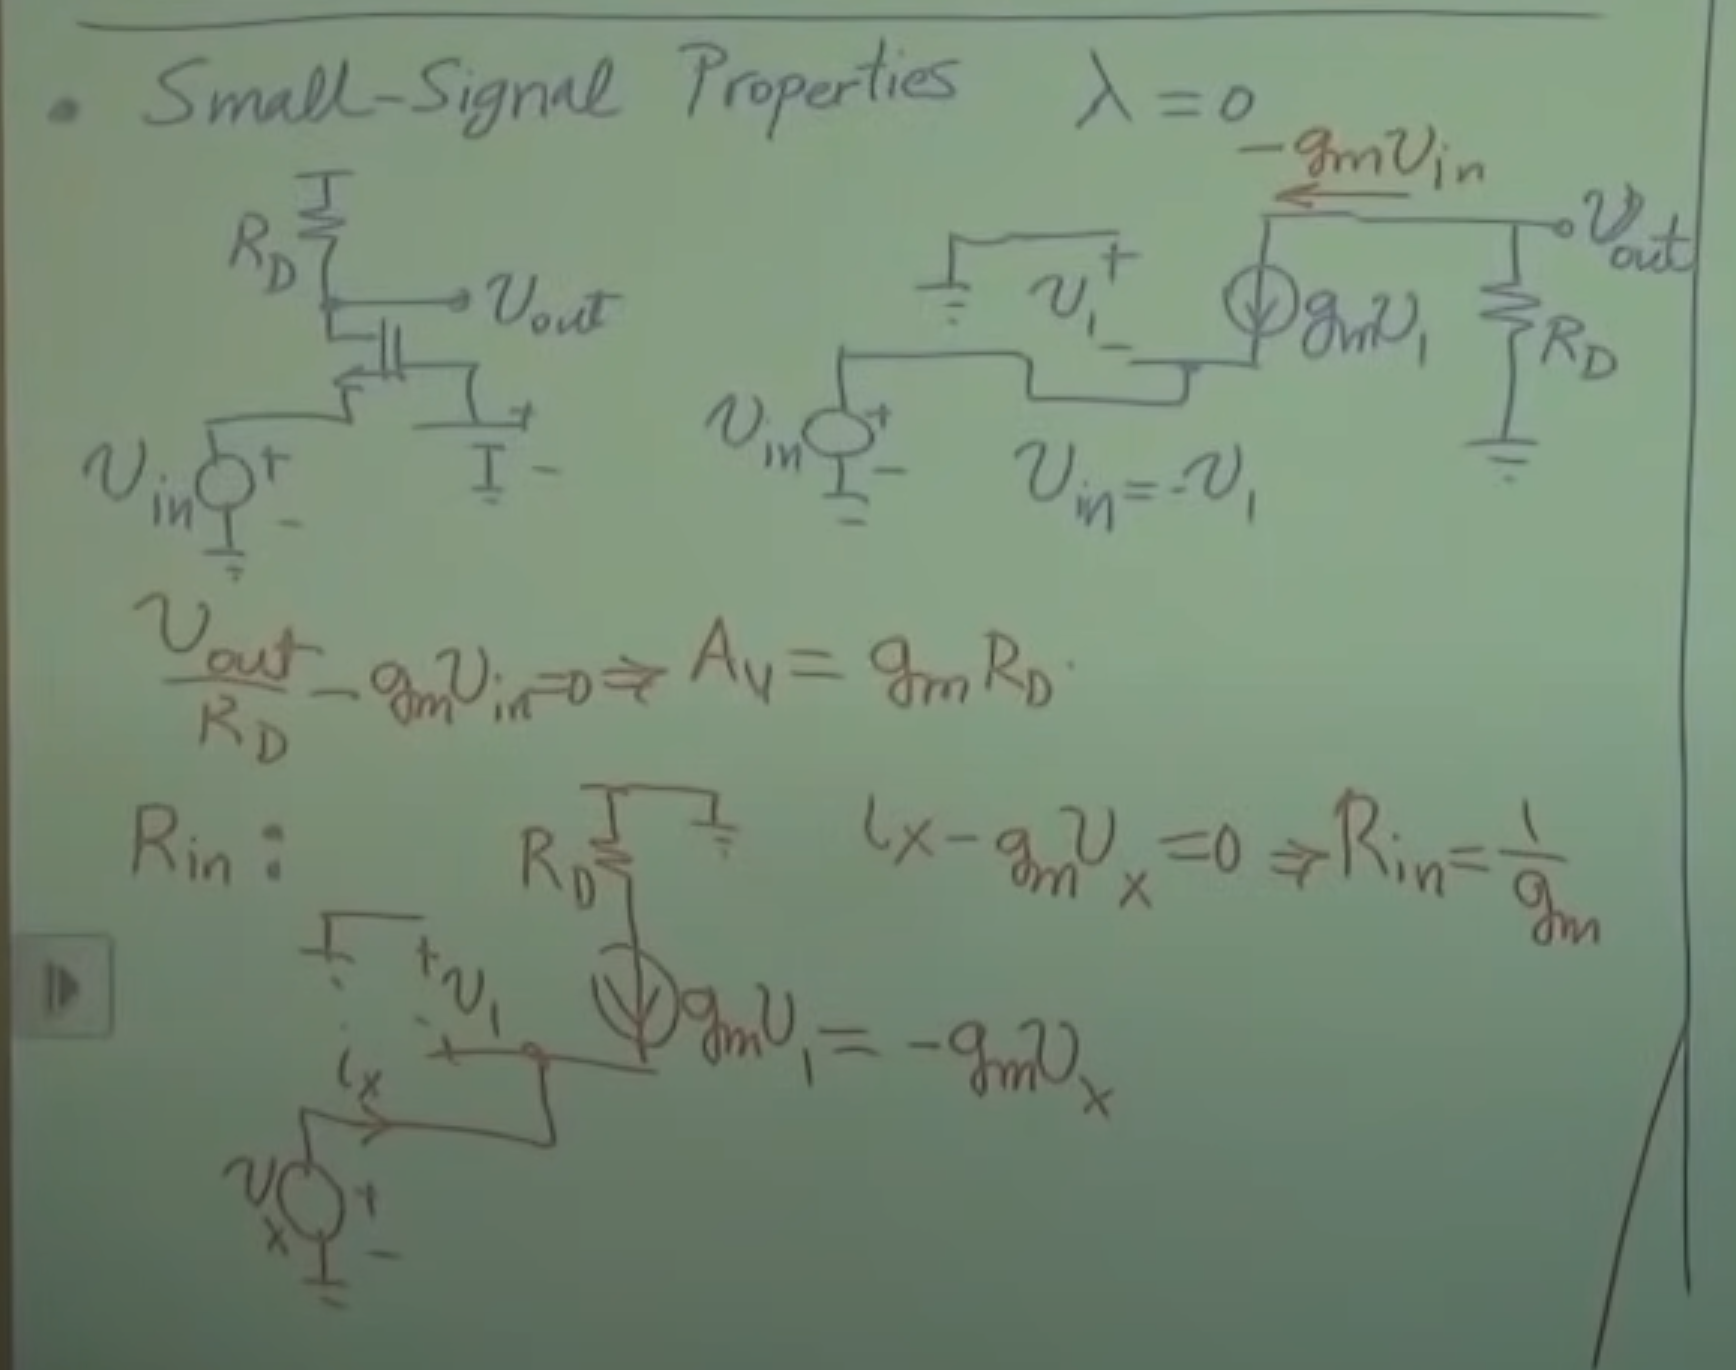 • Small-Signal Properties λ = 0
-gmvin
RD
vout
vout
+
v1
-
gmv1
RD
+
-
vin
+
-
vin
+
-
vin = -v1
vout/RD - gmvin = 0 ⇒ Av = gm RD.
Rin :
RD
ix - gmvx = 0 ⇒ Rin = 1/gm
+
v1
-
gmv1 = -gmvx
ix
vx
+
-